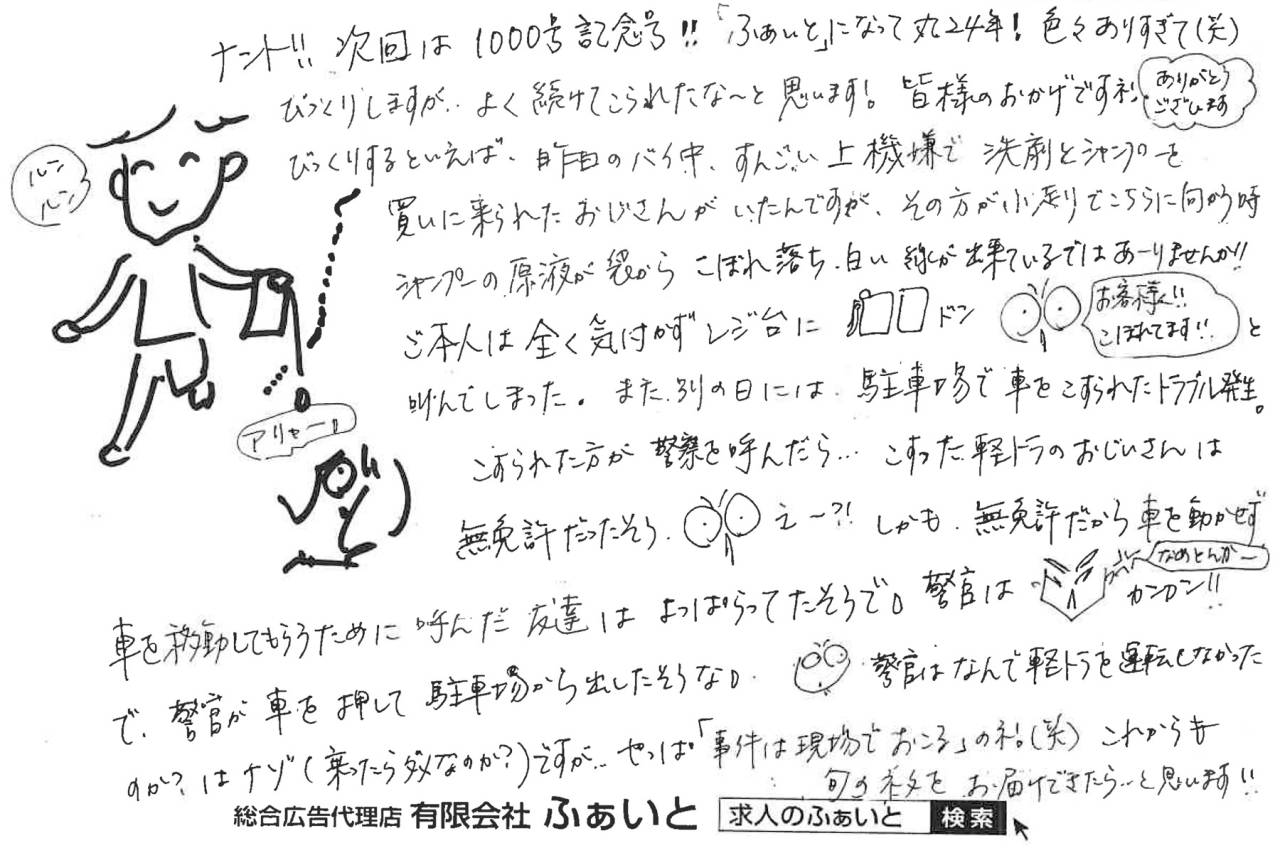 ナント!! 次回は1000号記念号!!「ふぁいと」になって丸24年! 色々ありすぎて(笑)
びっくりしますが‥よく続けてこられたな〜と思います! 皆様のおかげですネ!
ありがとう
ございます
ルン
ルン
びっくりするといえば、昨日のバイ中、すんごい上機嫌で洗剤とシャンプーを
買いに来られたおじさんがいたんですが、その方が小走りでこちらに向かう時
シャンプーの原液が袋からこぼれ落ち、白い線が出来ているではあーりませんか!!
ご本人は全く気付かずレジ台に ドン
お客様!!
こぼれてます!!
と
叫んでしまった。また別の日には、駐車場で車をこすられたトラブル発生。
アリャー
こすられた方が警察を呼んだら… こすった軽トラのおじいさんは
無免許だったそう、 えー?! しかも、無免許だから車を動かせず
車を移動してもらうために呼んだ友達はよっぱらってたそうで。警官は
なめとんかー
カンカン!!
で、警官が車を押して駐車場から出したそうな。 警官はなんで軽トラを運転しなかった
のか?はナゾ(乗ったらダメなのか?)ですが‥やっぱ「事件は現場でおこる」のネ。(笑) これからも
旬のネタをお届けできたら‥と思います!!
総合広告代理店 有限会社 ふぁいと 求人のふぁいと 検索